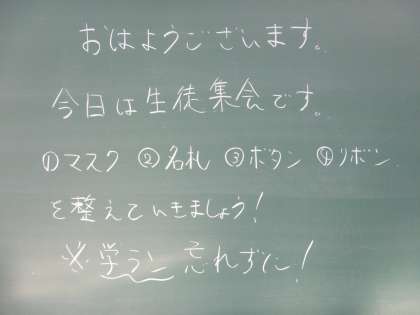 おはようございます。
今日は生徒集会です。
①マスク ②名札 ③ボタン ④リボン
を整えていきましょう!
※学ラン 忘れずに!